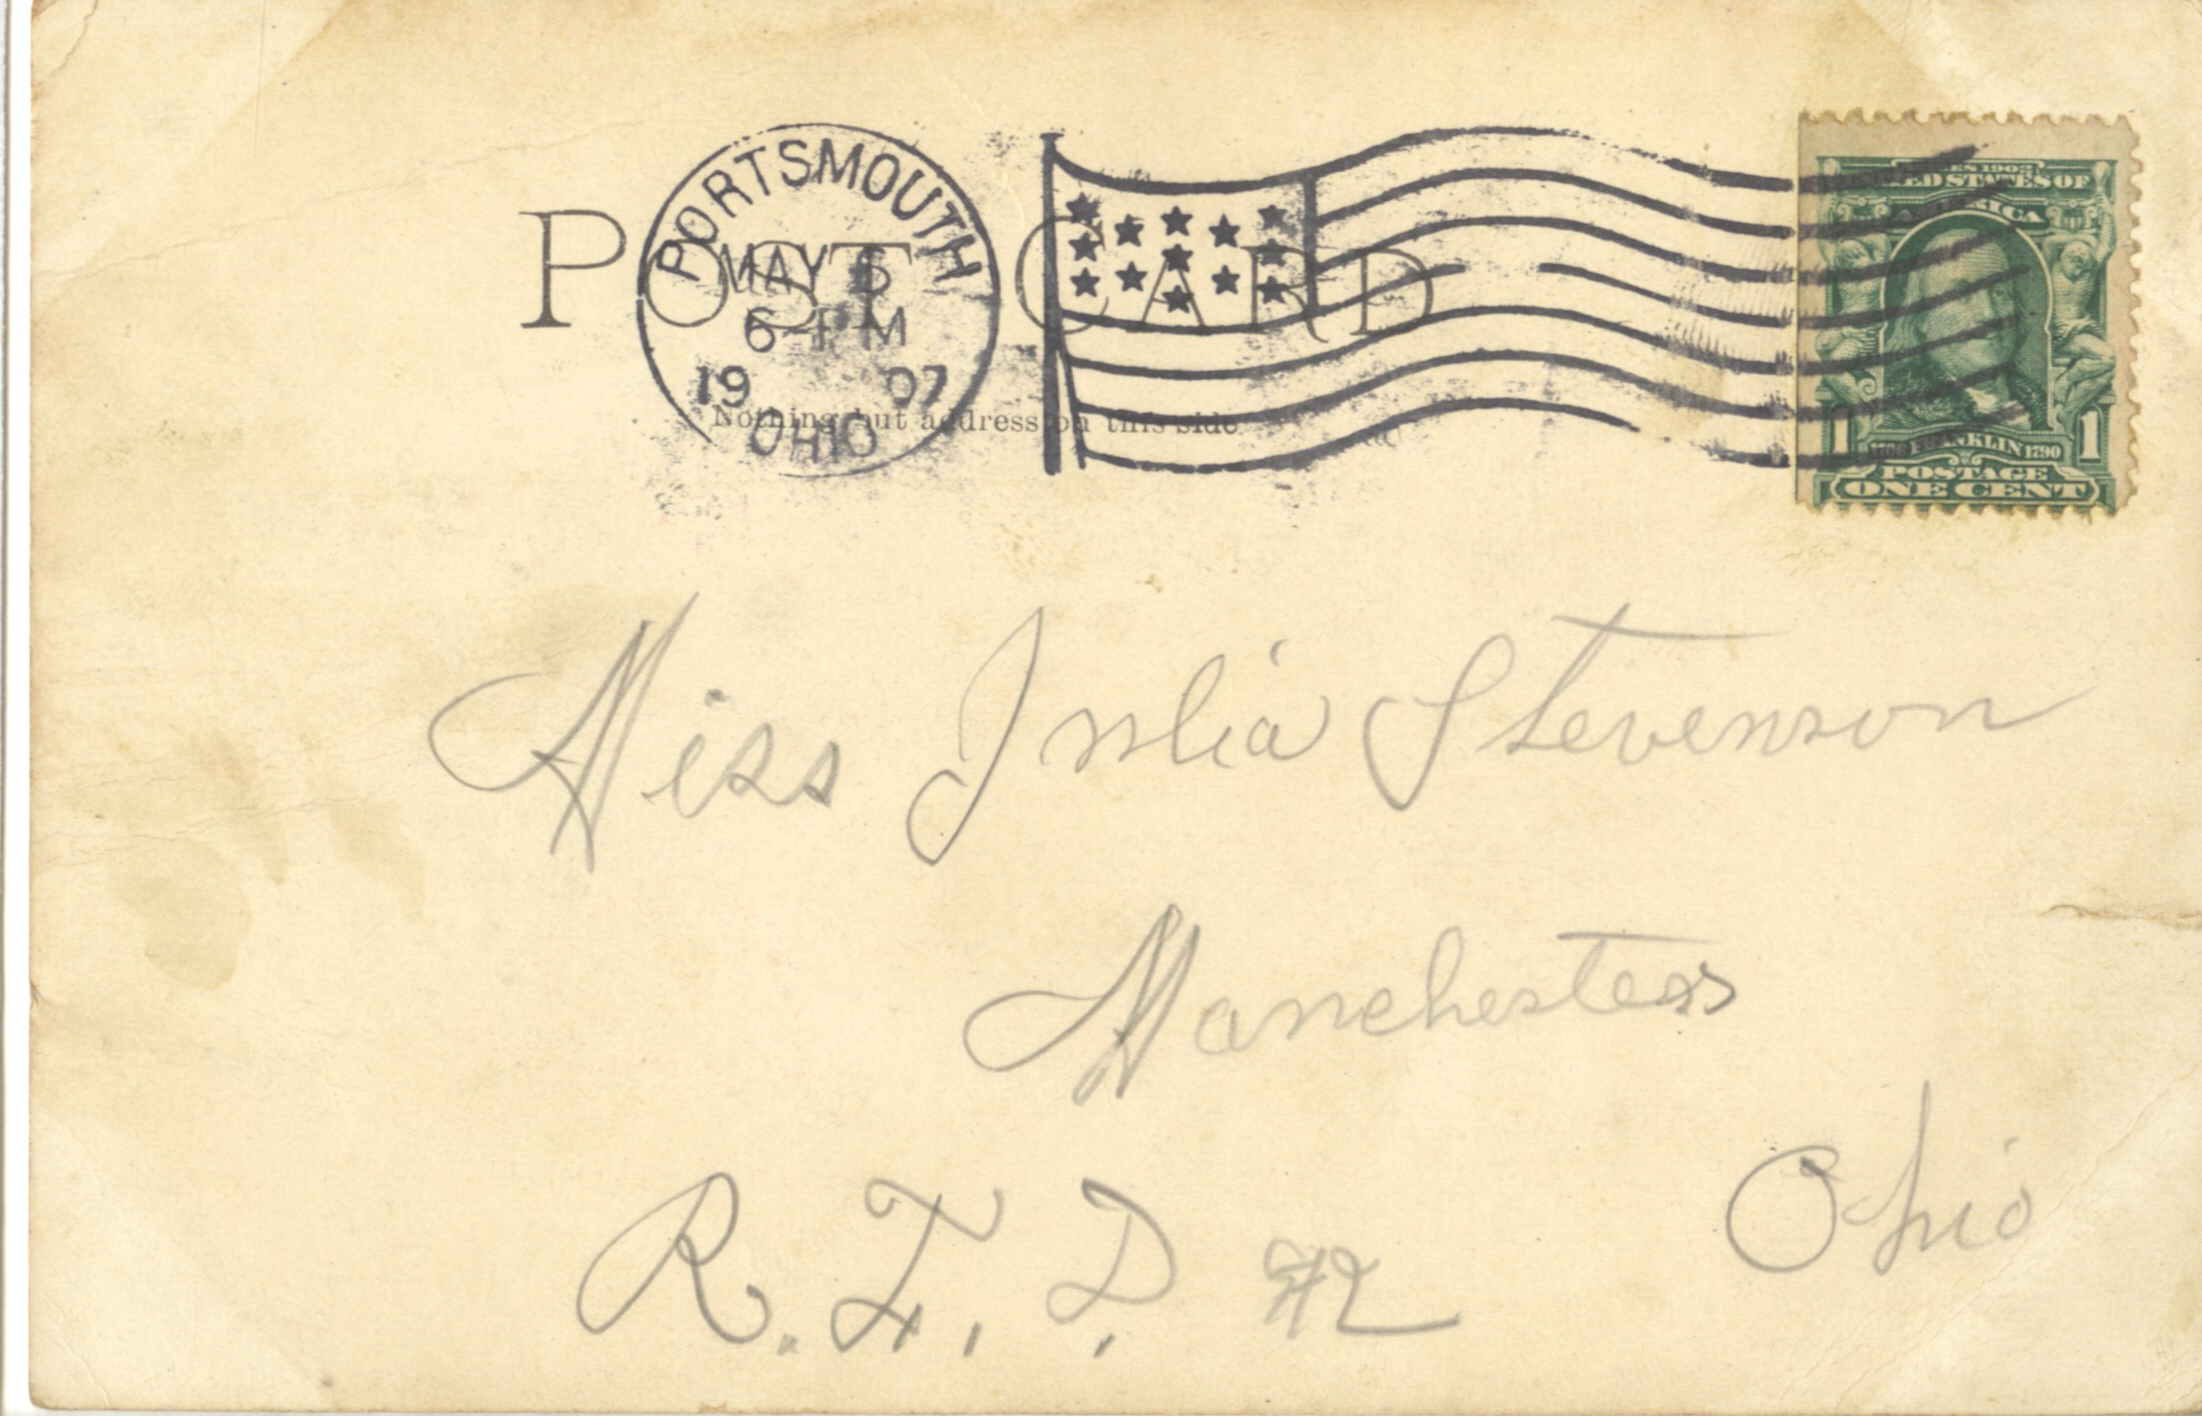 PORTSMOUTH
MAY 6
6-PM
1907
OHIO
POST CARD
Nothing but address on this side
SERIES 1902
UNITED STATES OF
AMERICA
1 FRANKLIN 1790 1
POSTAGE
ONE CENT
Miss Julia Stevenson
Manchester
Ohio
R.F.D. #2